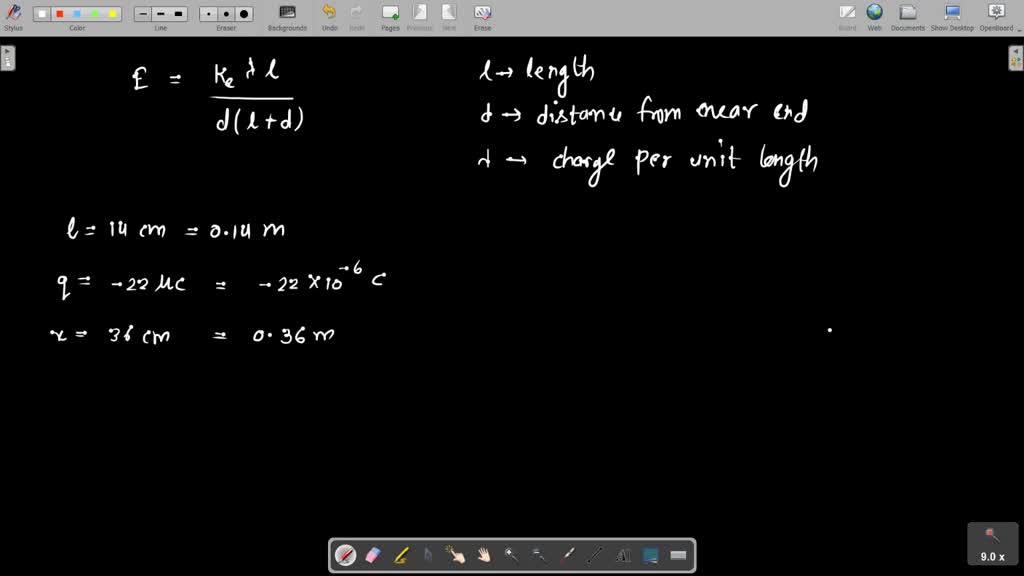 Stylus Color Line Eraser Backgrounds Undo Redo Pages Previous Next Erase Board Web Documents Show Desktop OpenBoard
E = Ke λ l / d(l+d)
l → length
d → distance from near end
λ → charge per unit length
l = 14 cm = 0.14 m
q = -22 μC = -22 × 10^-6 C
x = 36 cm = 0.36 m
9.0 x